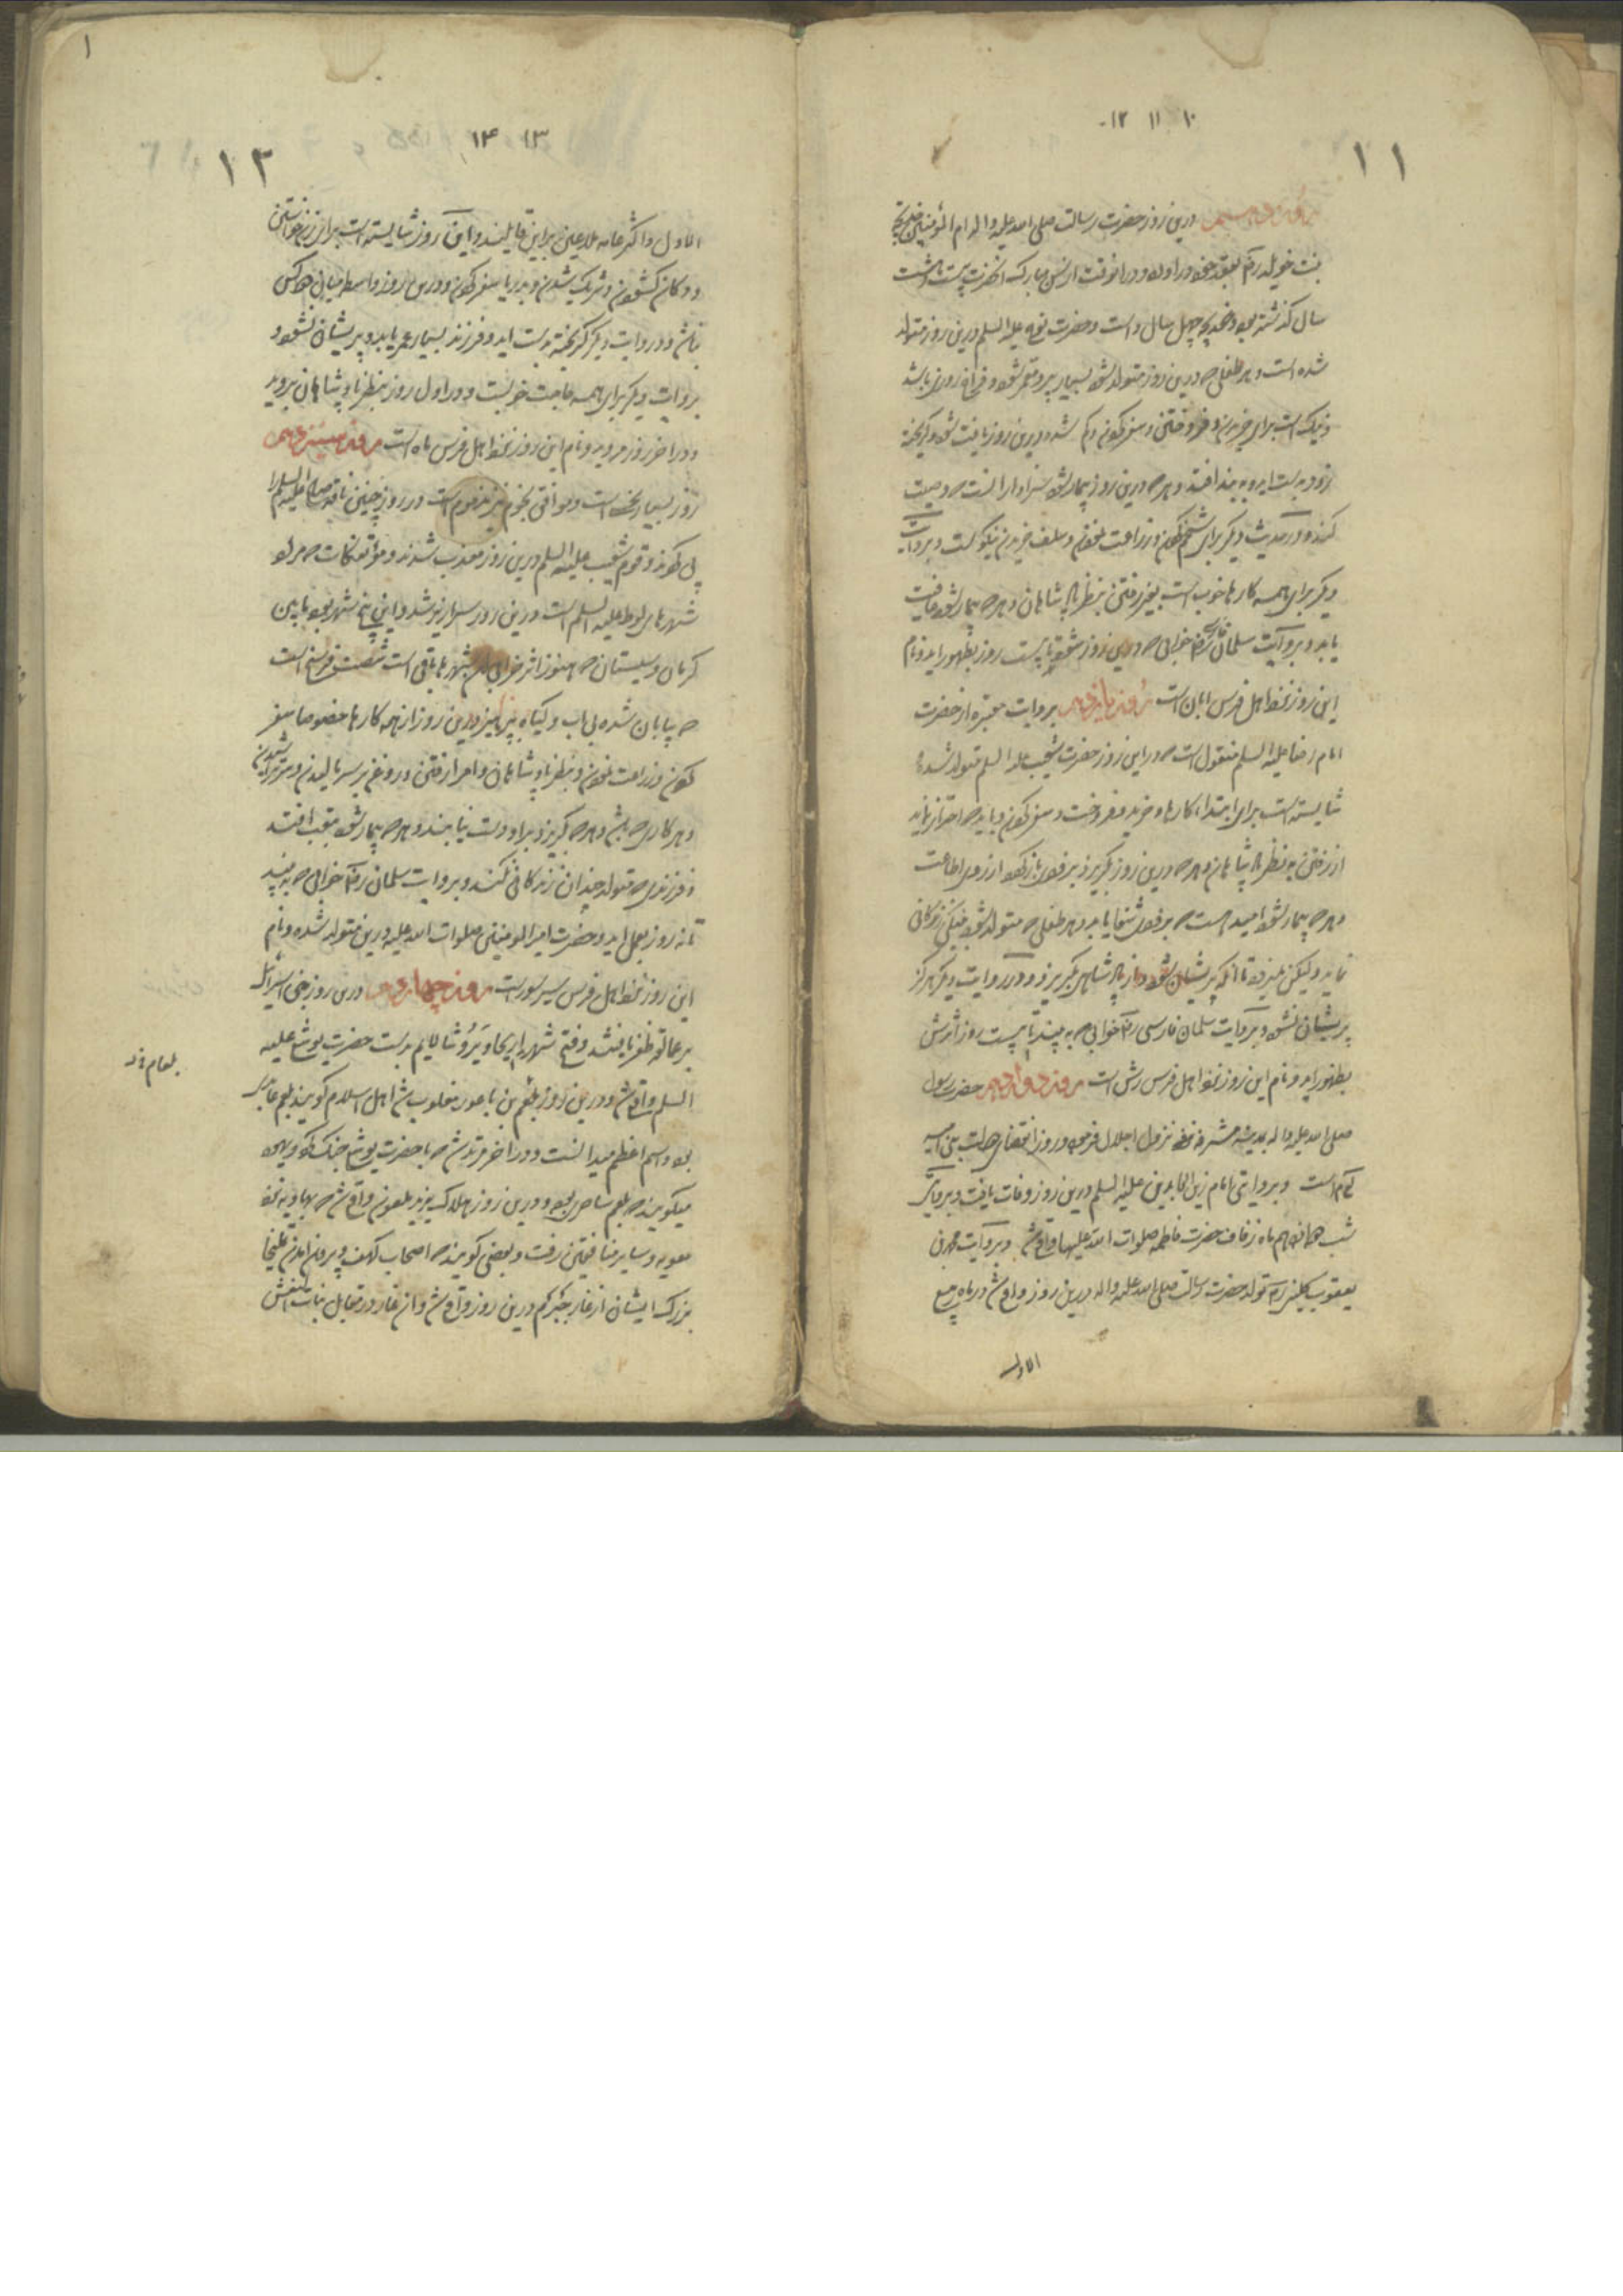 ۱۰ ۱۱ ۱۲
۱۱
روز دهم درین روز حضرت رسالت صلی الله علیه و اله ام المؤمنین خدیجه
بنت خویلد را بعقد خود در اورده و در انوقت از سن مبارک انحضرت بیست و هشت
سال گذشته بود و خدیجه چهل سال داشت و حضرت نوح علیه السلم درین روز متولد
شده است و هر طفلی که درین روز متولد شود بسیار پیر و معمر شود و فراخ روزی باشد
و نیک است برای خریدن و فروختن و سفر کردن و کم شده درین روز یافت شود و گریخته
زود بدست اید و به بند افتد و هر که درین روز بیمار شود سزاوار انست که وصیت
کند و در حدیث دیگر برای تخم کردن و زراعت نمودن و سلف خریدن نیکوست و بروایت
دیگر برای همه کارها خوب است بغیر رفتن بنظر پادشاهان و هر که بیمار شود عافیت
یابد و بروایت سلمان فارسی خوابی که درین روز شود تا بیست روز بظهور اید و نام
این روز نزد اهل فرس ابان است روز یازدهم بروایت معتبره از حضرت
امام رضا علیه السلم منقول است که در این روز حضرت شیث علیه السلم متولد شده
شایسته است برای ابتداء کارها و خرید و فروخت و سفر کردن و باید که احتراز نماید
از رفتن به نظر پادشاهان و هر که درین روز بگریزد بزودی باز گردد از روی اطاعت
و هر که بیمار شود امید هست که بزودی شفا یابد و هر طفلی که متولد شود نیکی زندگانی
نماید و لیکن نمیرد تا انکه پریشان شود و از پادشاهی بگریزد و در روایت دیگر هرگز
پریشان نشود و بروایت سلمان فارسی خوابی که به بیند تا بیست روز اثرش
بظهور اید و نام این روز نزد اهل فرس رش است روز دوازدهم حضرت رسول
صلی الله علیه و اله بمدینه مشرفه نزول اجلال فرمود و روز انقضای دولت بنی امیه
است و بروایتی امام زین العابدین علیه السلم درین روز وفات یافت و بروایتی
شب ماه زفاف حضرت فاطمه صلوات الله علیها واقع شد و بروایت محمد بن
یعقوب کلینی تولد حضرت رسالت صلی الله علیه و اله درین روز واقع شد در ماه ربیع
الاول
۱
۱۳ ۱۴
۱۲
الاول و اکثر عامه ملاعین براین قایلند و این روز شایسته است برای زن خواستن
و دکان گشودن و شریک شدن و بدریا سفر کردن و درین روز واسطه میان دو کس
نباشد و در روایت دیگر گریخته بدست اید و فرزند بسیار عمر یابد و پریشان نشود و
بروایت دیگر برای همه حاجت خوبست و در اول روز بنظر پادشاهان بروید
و در اخر روز مروید و نام این روز نزد اهل فرس ماه است روز سیزدهم
روز بسیار نحس است و موافق نجوم نیز مذموم است در روز چنین ناقه صالح علیه السلم را
پی کردند و قوم شعیب علیه السلم درین روز معذب شدند و مؤتفکات که مراد
شهرهای لوط علیه السلم است درین روز سرازیر شد و این پنج شهر بود مابین
کرمان و سیستان که هنوز اثر خرابی ان شهرها باقی است شصت فرسخ است
که بیابان شده بی اب و گیاه بپرهیز درین روز از همه کارها خصوصا سفر
کردن و زراعت نمودن و بنظر پادشاهان و امرا رفتن و روغن بر سر مالیدن و سر تراشیدن
و هر کاری که باشد و هر که بگریزد برو دست نیابند و هر که بیمار شود بتعب افتد
و فرزندی که متولد چندان زندگانی نکند و بروایت سلمان خوابی که به بیند
تا نه روز بعمل اید و حضرت امیر المومنین صلوات الله علیه درین متولد شده و نام
این روز نزد اهل فرس تیر است روز چهاردهم درین روز بنی اسرائیل
بر عمالقه ظفر یافتند و فتح شهر اریحا و یروشالایم بدست حضرت یوشع علیه
السلم واقع شد و درین روز بلعم بن باعور مغلوب شد اهل اسلام گویند بلعم عابد
بود و اسم اعظم میدانست و در اخر مرتد شد که با حضرت یوشع جنگ کرد و یهود
میگویند که بلعم ساحر بود و درین روز هلاک یزید ملعون واقع شد که بهاویه نزد
معویه و سایر منافقین رفت و بعضی گویند که اصحاب کهف و بیرون امدن یملیخا
بزرگ ایشان از غار درین روز واقع شد و ان غار در مقابل بنات النعش